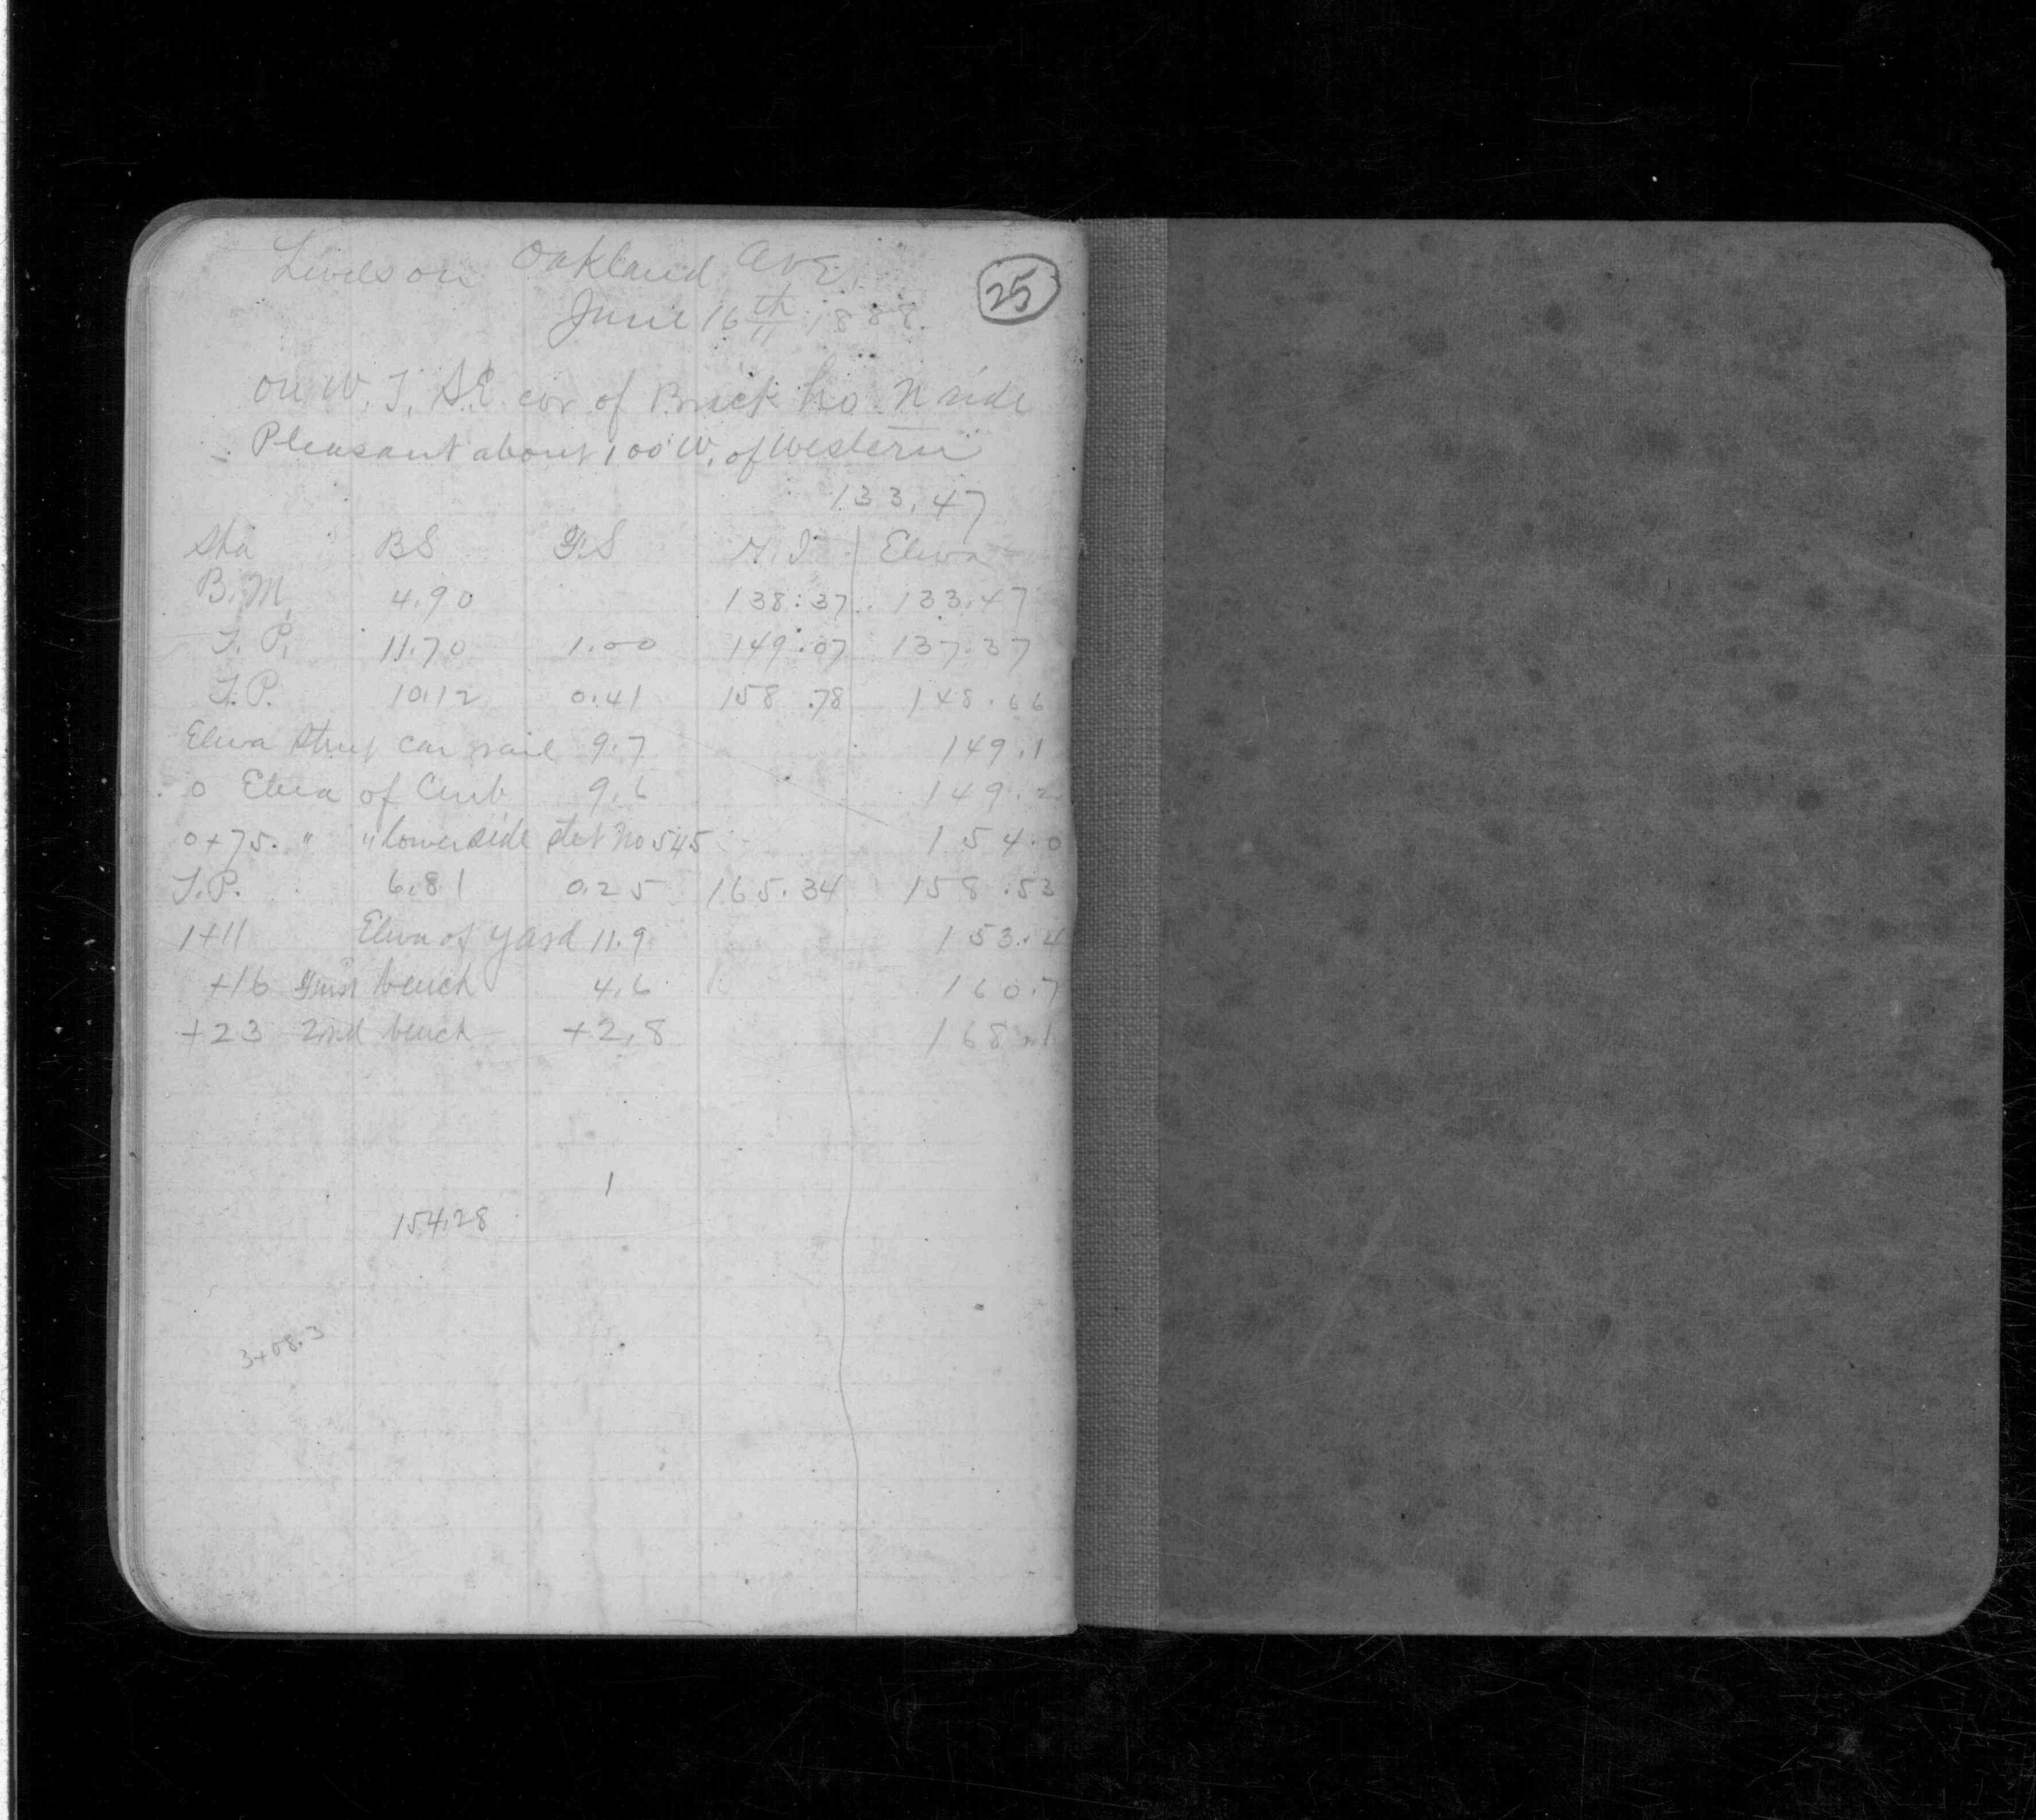 Levels on Oakland Ave.
25
June 16th 1888.
on W. T. S.E. cor of Brick ho. N side
Pleasant about 100 W. of Western
133.47
Sta BS F.S H.I Eleva
B.M. 4.90 138.37 133.47
T.P. 11.70 1.00 149.07 137.37
T.P. 10.12 0.41 158.78 148.66
Eleva Street car rail 9.7 149.1
0 Eleva of Curb 9.6 149.2
0+75. " " lower side No 545 154.0
T.P. 6.81 0.25 165.34 158.53
1+11 Eleva of yard 11.9 153.4
+16 First bench 4.6 160.7
+23 2nd bench +2.8 168.1
1
154.28
3+08.3